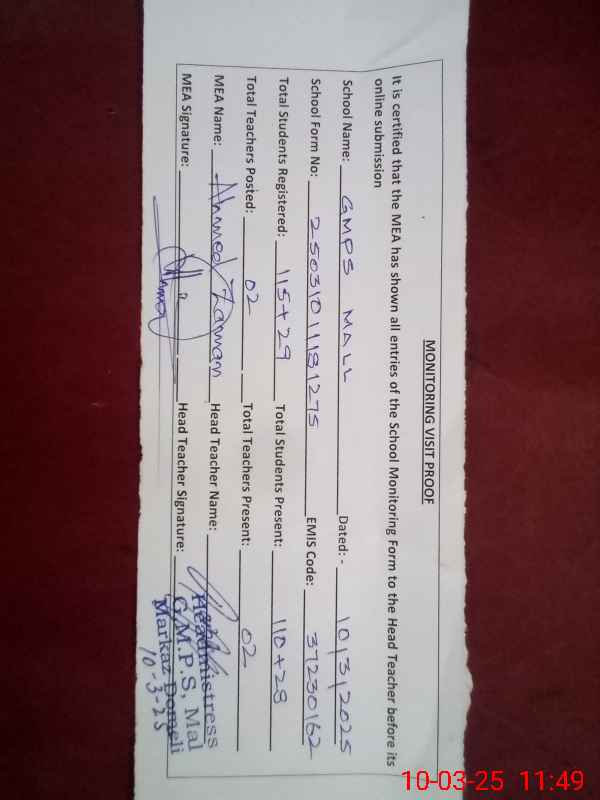 MONITORING VISIT PROOF
It is certified that the MEA has shown all entries of the School Monitoring Form to the Head Teacher before its
online submission
School Name: GMPS MALL Dated: - 10/3/2025
School Form No: 25031011181275 EMIS Code: 37230162
Total Students Registered: 115+29 Total Students Present: 110+28
Total Teachers Posted: 02 Total Teachers Present: 02
MEA Name: Ahmed Zaman Head Teacher Name:
MEA Signature: Head Teacher Signature:
Headmistress
G.M.P.S, Mal
Markaz Domeli
10-3-25
10-03-25 11:49